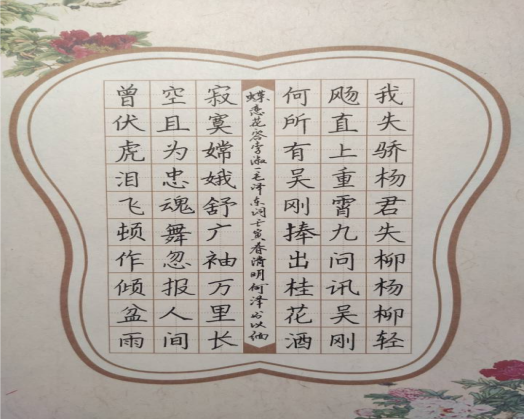 我失骄杨君失柳杨柳轻
飏直上重霄九问讯吴刚
何所有吴刚捧出桂花酒
蝶恋花答李淑一毛泽东词壬寅春清明何泽书以
寂寞嫦娥舒广袖万里长
空且为忠魂舞忽报人间
曾伏虎泪飞顿作倾盆雨